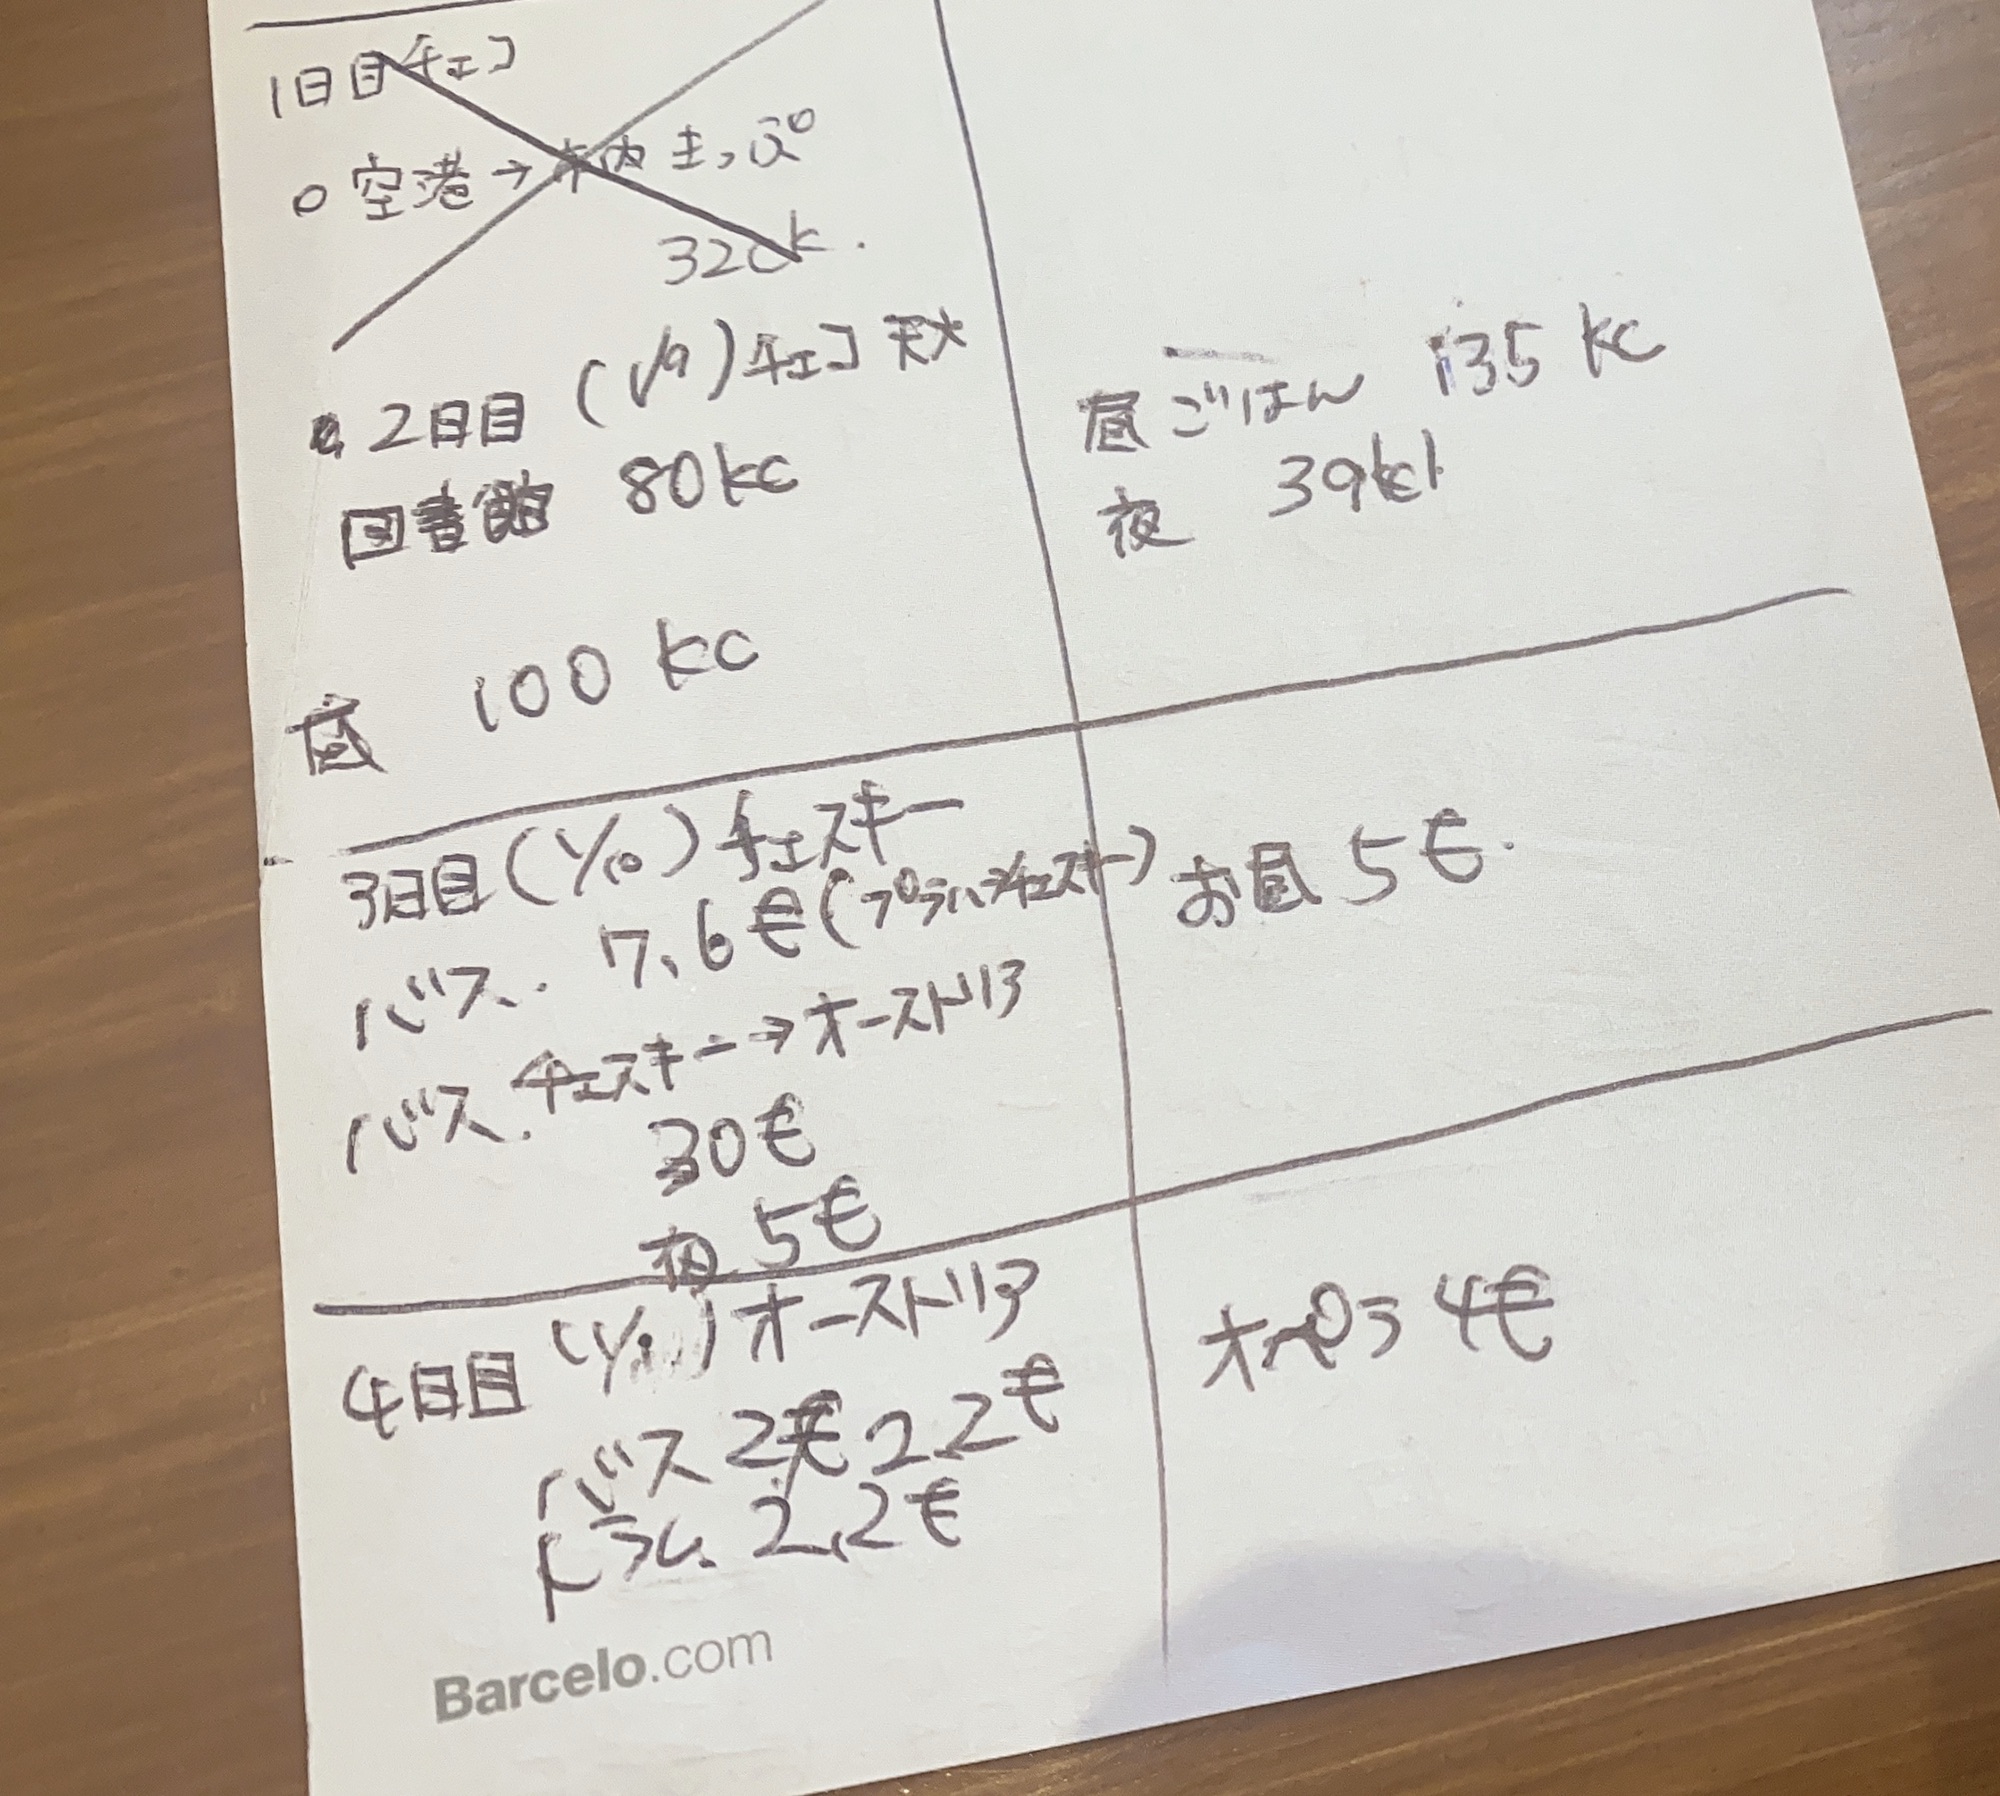 1日目チェコ
○ 空港→市内 きっぷ
320k.
2日目 (1/9) チェコ
図書館 80kc
昼 100 kc
昼ごはん 135 kc
夜 39kc
3日目 (1/10) チェスキー
バス. 7.6€ (プラハ→チェスキー)
バス. チェスキー→オーストリア
30€
夜 5€
お昼 5€.
4日目 (1/11) オーストリア
バス 2.2€
トラム 2.2€
オペラ 4€
Barcelo.com